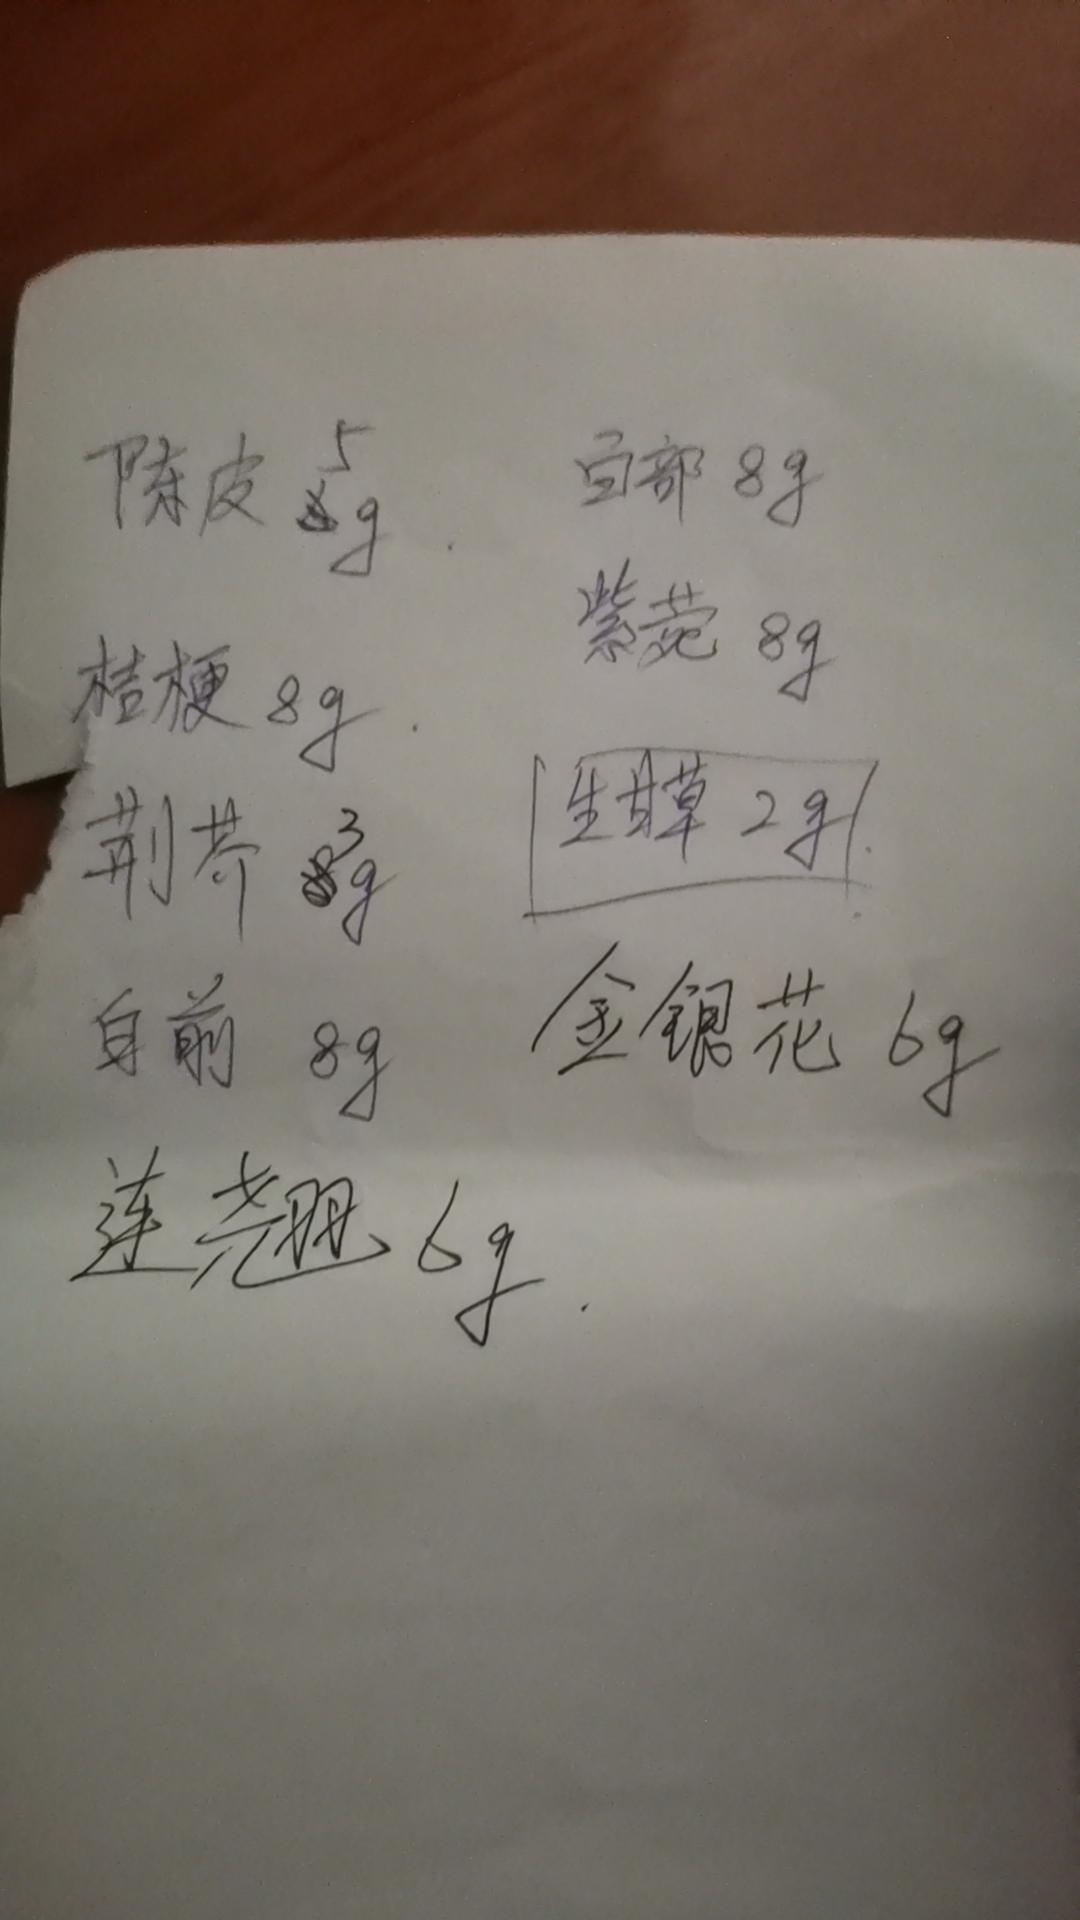 陈皮 5g
百部 8g
紫菀 8g
桔梗 8g
生甘草 2g
荆芥 3g
白前 8g
金银花 6g
连翘 6g